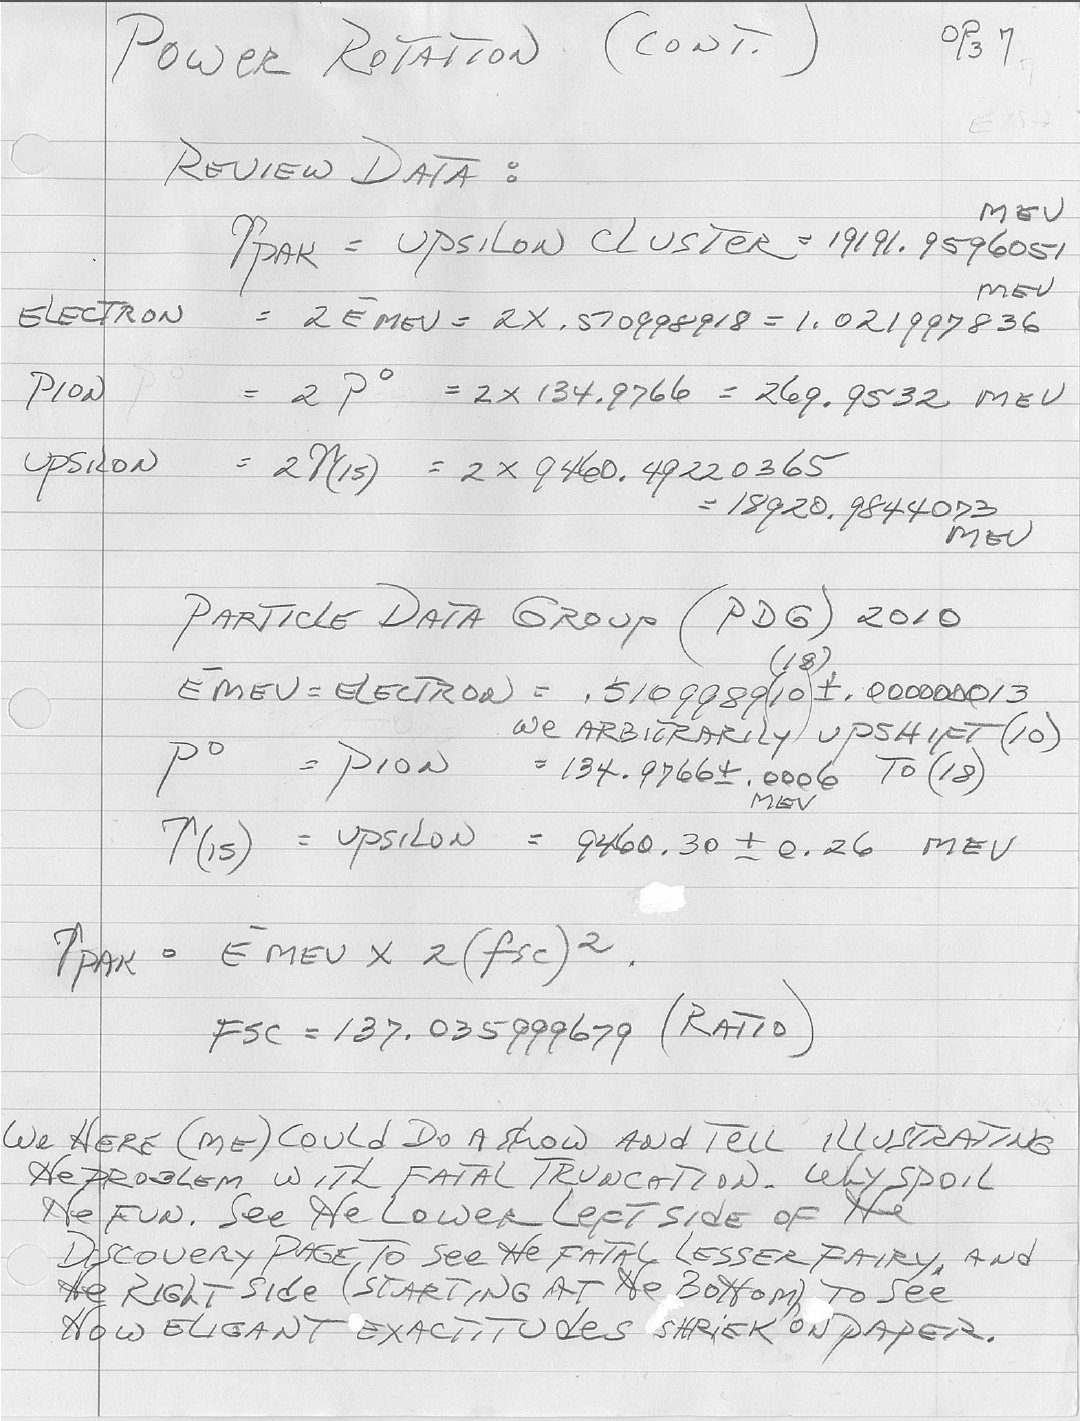 POWER ROTATION (CONT.) OP3 7
REVIEW DATA:
ϒPAK = UPSILON CLUSTER = 19191.9596051 MEV
ELECTRON = 2 E̅ MEV = 2X .510998918 = 1.021997836 MEV
PION = 2 P° = 2 X 134.9766 = 269.9532 MEV
UPSILON = 2ϒ(1S) = 2 X 9460.49220365
= 18920.9844073
MEV
PARTICLE DATA GROUP (PDG) 2010
(18)
E̅MEV = ELECTRON = .510998910 ±.000000013
WE ARBITRARILY UPSHIFT (10)
P° = PION = 134.9766 ± .0006 TO (18)
MEV
ϒ(1S) = UPSILON = 9460.30 ± 0.26 MEV
ϒPAK = E̅ MEV X 2(fsc)2.
FSC = 137.035999679 (RATIO)
We HERE (ME) COULD DO A SHOW AND TELL ILLUSTRATING
The PROBLEM WITH FATAL TRUNCATION. WHY SPOIL
The FUN. See The LOWER LEFT SIDE OF The
DISCOVERY PAGE, TO See The FATAL LESSER FAIRY, AND
The RIGHT SIDE (STARTING AT The BOTTOM) TO See
HOW ELIGANT EXACTITUDES SHRIEK ON PAPER.